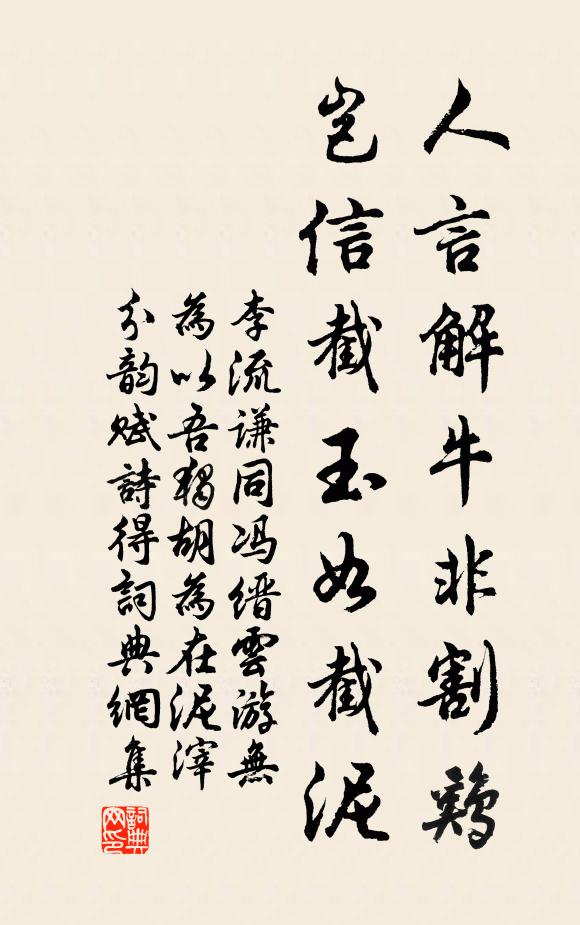 人言解牛非割鷄
豈信截玉如截泥
李流謙同冯缙雲游無
為以吾獨胡為在泥滓
分韵賦詩得詞典網集
詞典网印